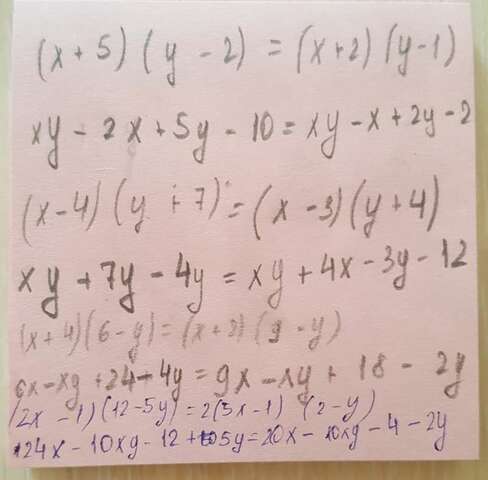 (x + 5) (y - 2) = (x + 2) (y - 1)
xy - 2x + 5y - 10 = xy - x + 2y - 2
(x - 4) (y + 7) = (x - 3) (y + 4)
xy + 7y - 4y = xy + 4x - 3y - 12
(x + 4) (6 - y) = (x + 2) (9 - y)
6x - xy + 24 - 4y = 9x - xy + 18 - 2y
(2x - 1) (12 - 5y) = 2(5x - 1) (2 - y)
24x - 10xy - 12 + 5y = 20x - 10xy - 4 - 2y